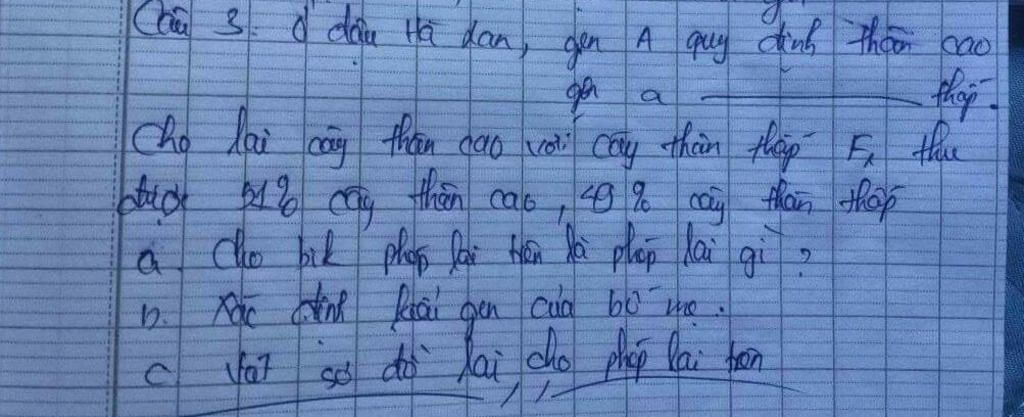 Câu 3. Ở đậu Hà Lan, gen A quy định thân cao
gen a ——— thấp.
Cho lai cây thân cao với cây thân thấp F1 thu
được 51% cây thân cao, 49% cây thân thấp
a. Cho biết phép lai trên là phép lai gì?
b. Xác định kiểu gen của bố mẹ.
c Viết sơ đồ lai cho phép lai trên